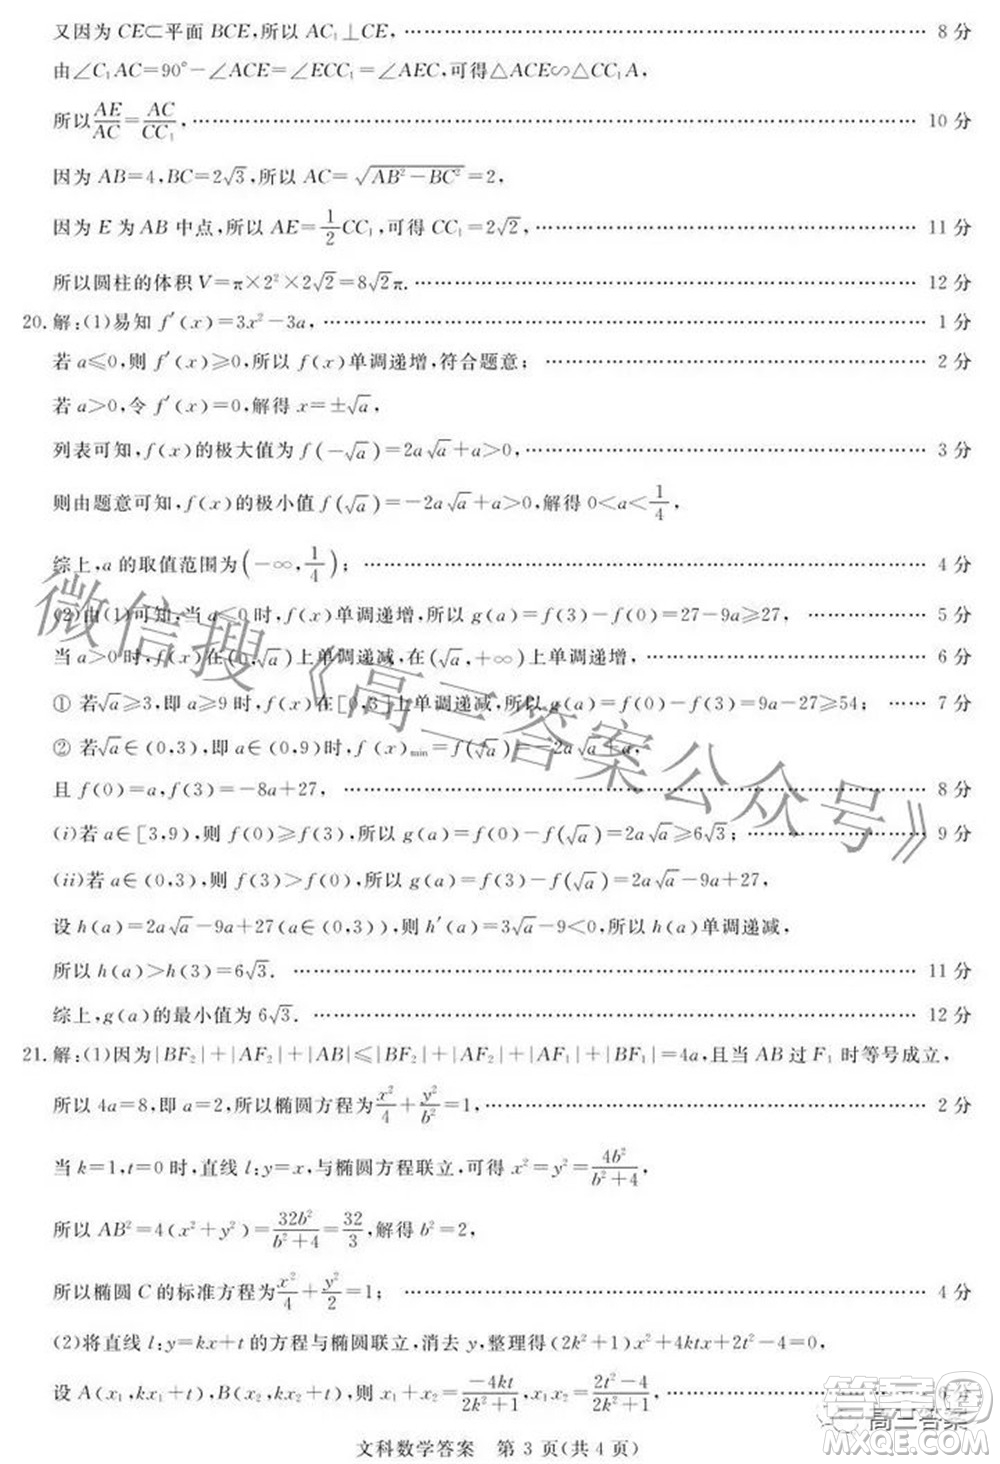 又因为 CE⊂平面 BCE,所以 AC₁⊥CE,…… 8 分
由∠C₁AC=90°−∠ACE=∠ECC₁=∠AEC,可得△ACE∽△CC₁A,
所以 AE/AC=AC/CC₁,…… 10 分
因为 AB=4,BC=2√3,所以 AC=√(AB²−BC²)=2,
因为 E 为 AB 中点,所以 AE=1/2 CC₁,可得 CC₁=2√2,…… 11 分
所以圆柱的体积 V=π×2²×2√2=8√2π.…… 12 分
20.解:(1)易知 f′(x)=3x²−3a,…… 1 分
若 a≤0,则 f′(x)≥0,所以 f(x)单调递增,符合题意; …… 2 分
若 a>0,令 f′(x)=0,解得 x=±√a,
列表可知,f(x)的极大值为 f(−√a)=2a√a+a>0,…… 3 分
则由题意可知,f(x)的极小值 f(√a)=−2a√a+a>0,解得 0<a<1/4,
综上,a 的取值范围为(−∞,1/4); …… 4 分
(2)由(1)可知,当 a≤0 时,f(x)单调递增,所以 g(a)=f(3)−f(0)=27−9a≥27, …… 5 分
当 a>0 时,f(x)在(0,√a)上单调递减,在(√a,+∞)上单调递增,…… 6 分
① 若√a≥3,即 a≥9 时,f(x)在[0,3]上单调递减,所以 g(a)=f(0)−f(3)=9a−27≥54; …… 7 分
② 若√a∈(0,3),即 a∈(0,9)时,f(x)min=f(√a)=−2a√a+a,
且 f(0)=a,f(3)=−8a+27, …… 8 分
(i)若 a∈[3,9),则 f(0)≥f(3),所以 g(a)=f(0)−f(√a)=2a√a≥6√3; …… 9 分
(ii)若 a∈(0,3),则 f(3)>f(0),所以 g(a)=f(3)−f(√a)=2a√a−9a+27,
设 h(a)=2a√a−9a+27(a∈(0,3)),则 h′(a)=3√a−9<0,所以 h(a)单调递减,
所以 h(a)>h(3)=6√3. …… 11 分
综上,g(a)的最小值为 6√3. …… 12 分
21.解:(1)因为|BF₂|+|AF₂|+|AB|≤|BF₂|+|AF₂|+|AF₁|+|BF₁|=4a,且当 AB 过 F₁ 时等号成立,
所以 4a=8,即 a=2,所以椭圆方程为 x²/4+y²/b²=1,…… 2 分
当 k=1,t=0 时,直线 l:y=x,与椭圆方程联立,可得 x²=y²=4b²/(b²+4),
所以 AB²=4(x²+y²)=32b²/(b²+4)=32/3,解得 b²=2,
所以椭圆 C 的标准方程为 x²/4+y²/2=1; …… 4 分
(2)将直线 l:y=kx+t 的方程与椭圆联立,消去 y,整理得(2k²+1)x²+4ktx+2t²−4=0,
设 A(x₁,kx₁+t),B(x₂,kx₂+t),则 x₁+x₂=−4kt/(2k²+1),x₁x₂=(2t²−4)/(2k²+1),…… 6 分
文科数学答案 第 3 页(共 4 页)
微信搜《高三答案公众号》
高三答案
答案圈
MXQE.COM